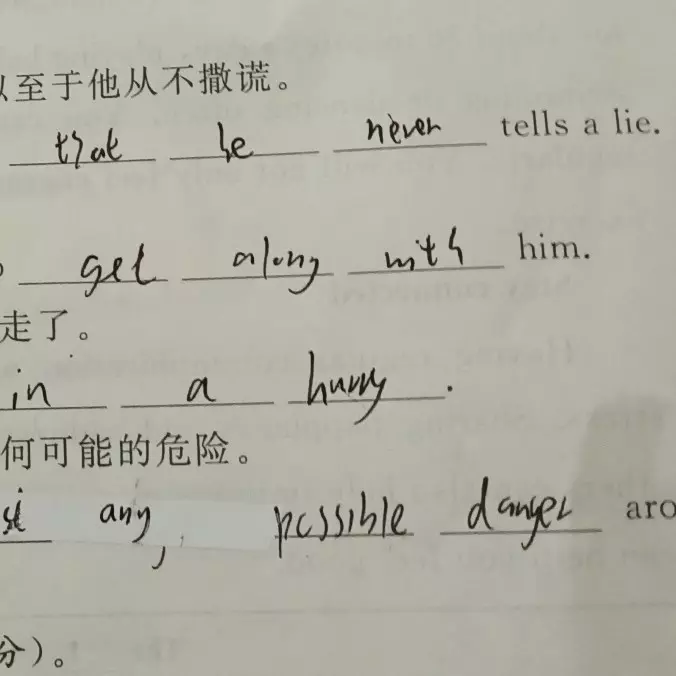 以至于他从不撒谎。
that he never tells a lie.
get along with him.
走了。
in a hurry.
何可能的危险。
any, possible danger aro
分）。